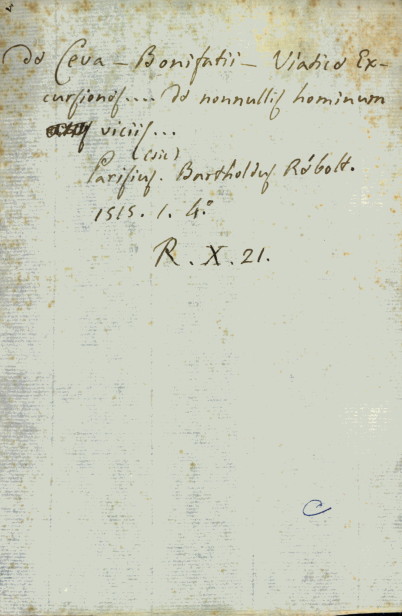 de Ceva - Bonifatii - Viatice Ex-
cursiones.... de nonnullis hominum
viciis...
(sic)
Parisius. Bartholdus Rébolt.
1515. 1. 4.°
R. X. 21.